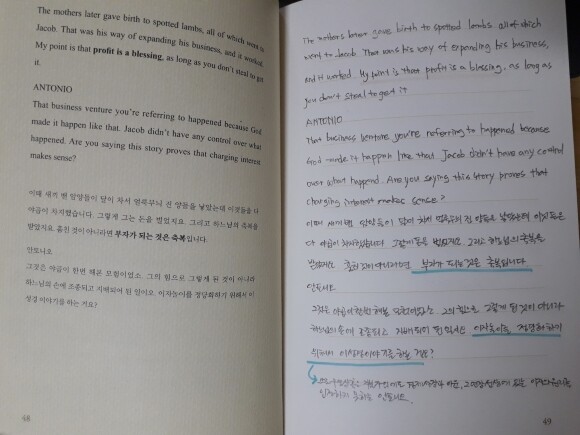 The mothers later gave birth to spotted lambs, all of which went to
Jacob. That was his way of expanding his business, and it worked.
My point is that profit is a blessing, as long as you don't steal to get
it.
ANTONIO
That business venture you're referring to happened because God
made it happen like that. Jacob didn't have any control over what
happened. Are you saying this story proves that charging interest
makes sense?
이때 새끼 밴 암양들이 달이 차서 얼룩무늬 진 양들을 낳았는데 이것들을 다
야곱이 차지했습니다. 그렇게 그는 돈을 벌었지요. 그리고 하느님의 축복을
받았지요. 훔친 것이 아니라면 부자가 되는 것은 축복입니다.
안토니오
그것은 야곱이 한번 해본 모험이었소. 그의 힘으로 그렇게 된 것이 아니라
하느님의 손에 조종되고 지배되어 된 일이오. 이자놀이를 정당화하기 위해서 이
성경 이야기를 하는 거요?
48
The mothers later gave birth to spotted lambs, all of which
went to Jacob. That was his way of expanding his business,
and it worked. My point is that profit is a blessing, as long as
you don't steal to get it
ANTONIO
That business venture you're referring to happened because
God made it happen like that. Jacob didn't have any control
over what happend. Are you saying this story proves that
charging interest makes sense?
이때 새끼밴 암양들이 달이 차서 얼룩무늬 진 양들을 낳았는데 이것들은
다 야곱이 차지했습니다. 그렇게 돈을 벌었지요. 그리고 하느님의 축복을
받았지요. 훔친 것이 아니라면 부자가 되는 것은 축복입니다
안토니오
그것은 야곱이 한번 해본 모험이었소. 그의 힘으로 그렇게 된 것이 아니라
하느님의 손에 조종되고 지배되어 된 일이오. 이자놀이를 정당화하기
위해서 이 성경이야기를 하는 거요?
49